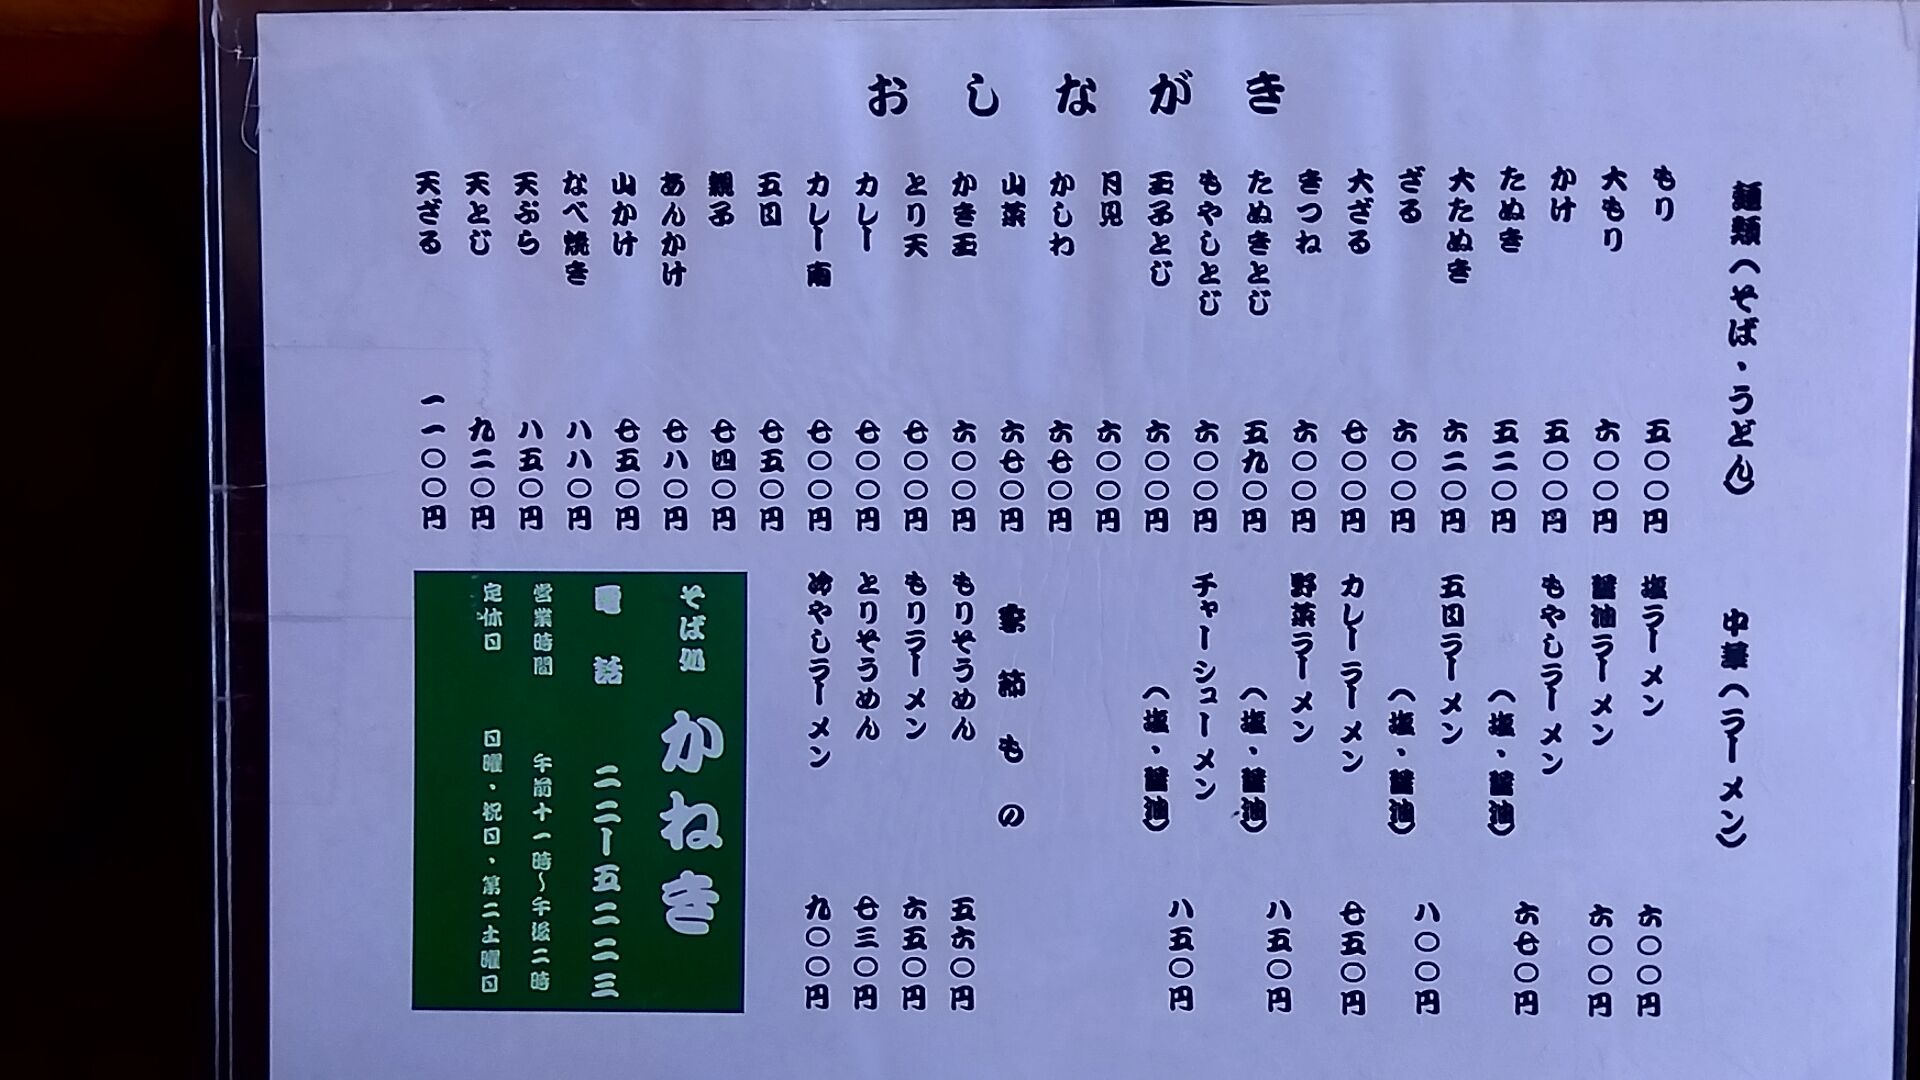 おしながき
麺類(そば・うどん)
もり 五〇〇円
大もり 六〇〇円
かけ 五〇〇円
たぬき 五二〇円
大たぬき 六二〇円
ざる 六〇〇円
大ざる 七〇〇円
きつね 六〇〇円
たぬきとじ 五九〇円
もやしとじ 六〇〇円
玉子とじ 六〇〇円
月見 六〇〇円
かしわ 六七〇円
山菜 六七〇円
かき玉 六〇〇円
とり天 七〇〇円
カレー 七〇〇円
カレー南 七〇〇円
五目 七五〇円
親子 七四〇円
あんかけ 七八〇円
山かけ 七五〇円
なべ焼き 八八〇円
天ぷら 八五〇円
天とじ 九二〇円
天ざる 一一〇〇円
中華(ラーメン)
塩ラーメン 六〇〇円
醤油ラーメン 六〇〇円
もやしラーメン
(塩・醤油) 六七〇円
五目ラーメン
(塩・醤油) 八〇〇円
カレーラーメン 七五〇円
野菜ラーメン
(塩・醤油) 八五〇円
チャーシューメン
(塩・醤油) 八五〇円
季節もの
もりそうめん 五六〇円
もりラーメン 六五〇円
とりそうめん 七三〇円
冷やしラーメン 九〇〇円
そば処 かねき
電話 二二ー五二二三
営業時間 午前十一時〜午後二時
定休日 日曜・祝日・第二土曜日